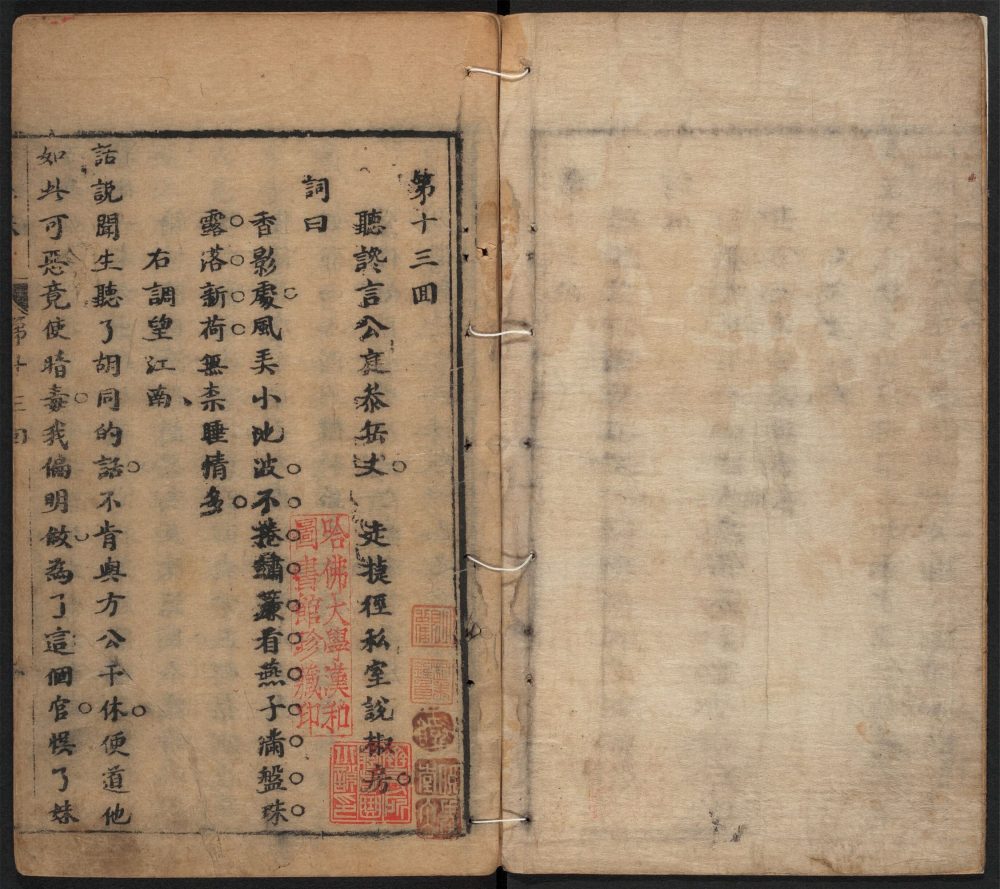 第十三回
聽讒言公庭叅岳丈 走捷徑私室說椒房
詞曰
香影處風弄小池波不捲繡簾看燕子滿盤珠
露落新荷無柰睡情多
右調望江南
話說聞生聽了胡同的話不肯與方公干休便道他
如此可惡竟使暗毒我偏明做為了這個官悞了妹
哈佛大學漢和
圖書館珍藏印